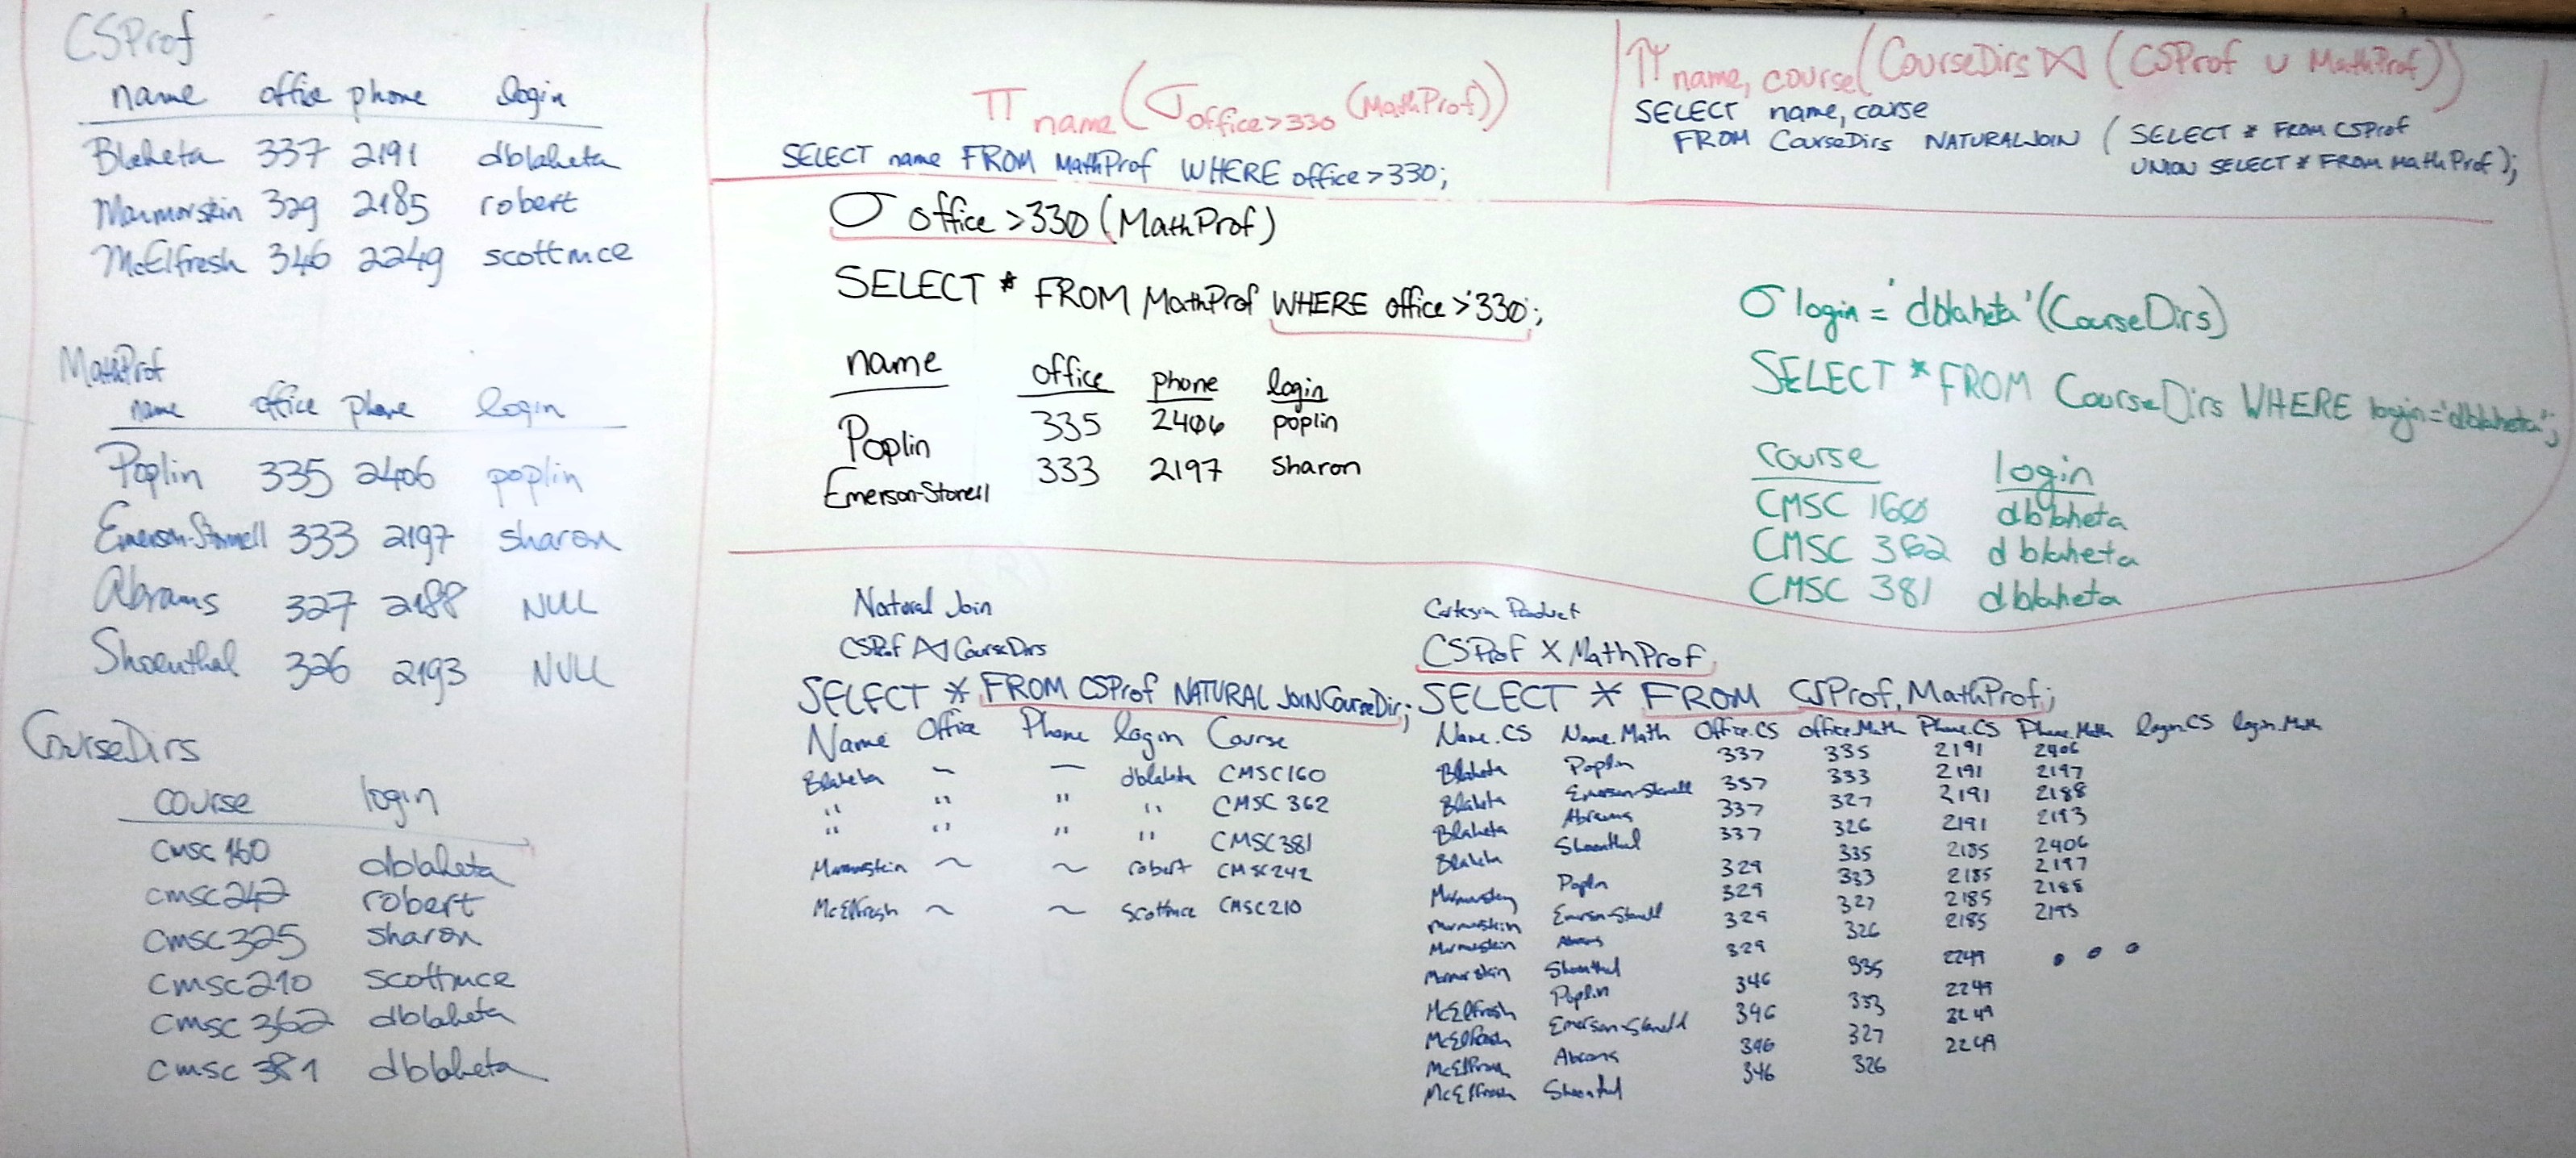 CSProf
name office phone login
Blaheta 337 2191 dblaheta
Marmorstein 329 2185 robert
McElfresh 346 2249 scottmce
MathProf
name office phone login
Poplin 335 2406 poplin
Emerson-Stonnell 333 2197 sharon
Abrams 327 2188 NULL
Shoenthal 326 2193 NULL
CourseDirs
course login
cmsc160 dblaheta
cmsc242 robert
cmsc325 sharon
cmsc210 scottmce
cmsc362 dblaheta
cmsc381 dblaheta
π name(σ office>330 (MathProf))
SELECT name FROM MathProf WHERE office>330;
π name, course(CourseDirs ⋈ (CSProf ∪ MathProf))
SELECT name, course
FROM CourseDirs NATURAL JOIN (SELECT * FROM CSProf
UNION SELECT * FROM MathProf);
σ office >330 (MathProf)
SELECT * FROM MathProf WHERE office >330;
name office phone login
Poplin 335 2406 poplin
Emerson-Stonell 333 2197 sharon
σ login = 'dblaheta' (CourseDirs)
SELECT * FROM CourseDirs WHERE login='dblaheta';
course login
CMSC 160 dblaheta
CMSC 362 dblaheta
CMSC 381 dblaheta
Natural Join
CSProf ⋈ CourseDirs
SELECT * FROM CSProf NATURAL JOIN CourseDir;
Name Office Phone login Course
Blaheta ~ ~ dblaheta CMSC160
" " " " CMSC 362
" " " " CMSC381
Marmorstein ~ ~ robert CMSC242
McElfresh ~ ~ scottmce CMSC210
Cartesian Product
CSProf X MathProf
SELECT * FROM CSProf, MathProf;
Name.CS Name.Math Office.CS office.Math Phone.CS Phone.Math login.CS login.Math
Blaheta Poplin 337 335 2191 2406
Blaheta Emerson-Stonell 337 333 2191 2197
Blaheta Abrams 337 327 2191 2188
Blaheta Shoenthal 337 326 2191 2193
Marmorstein Poplin 329 335 2185 2406
Marmorstein Emerson-Stonell 329 333 2185 2197
Marmorstein Abrams 329 327 2185 2188
Marmorstein Shoenthal 329 326 2185 2193
McElfresh Poplin 346 335 2249 . . .
McElfresh Emerson-Stonell 346 333 2249
McElfresh Abrams 346 327 2249
McElfresh Shoenthal 346 326 2249